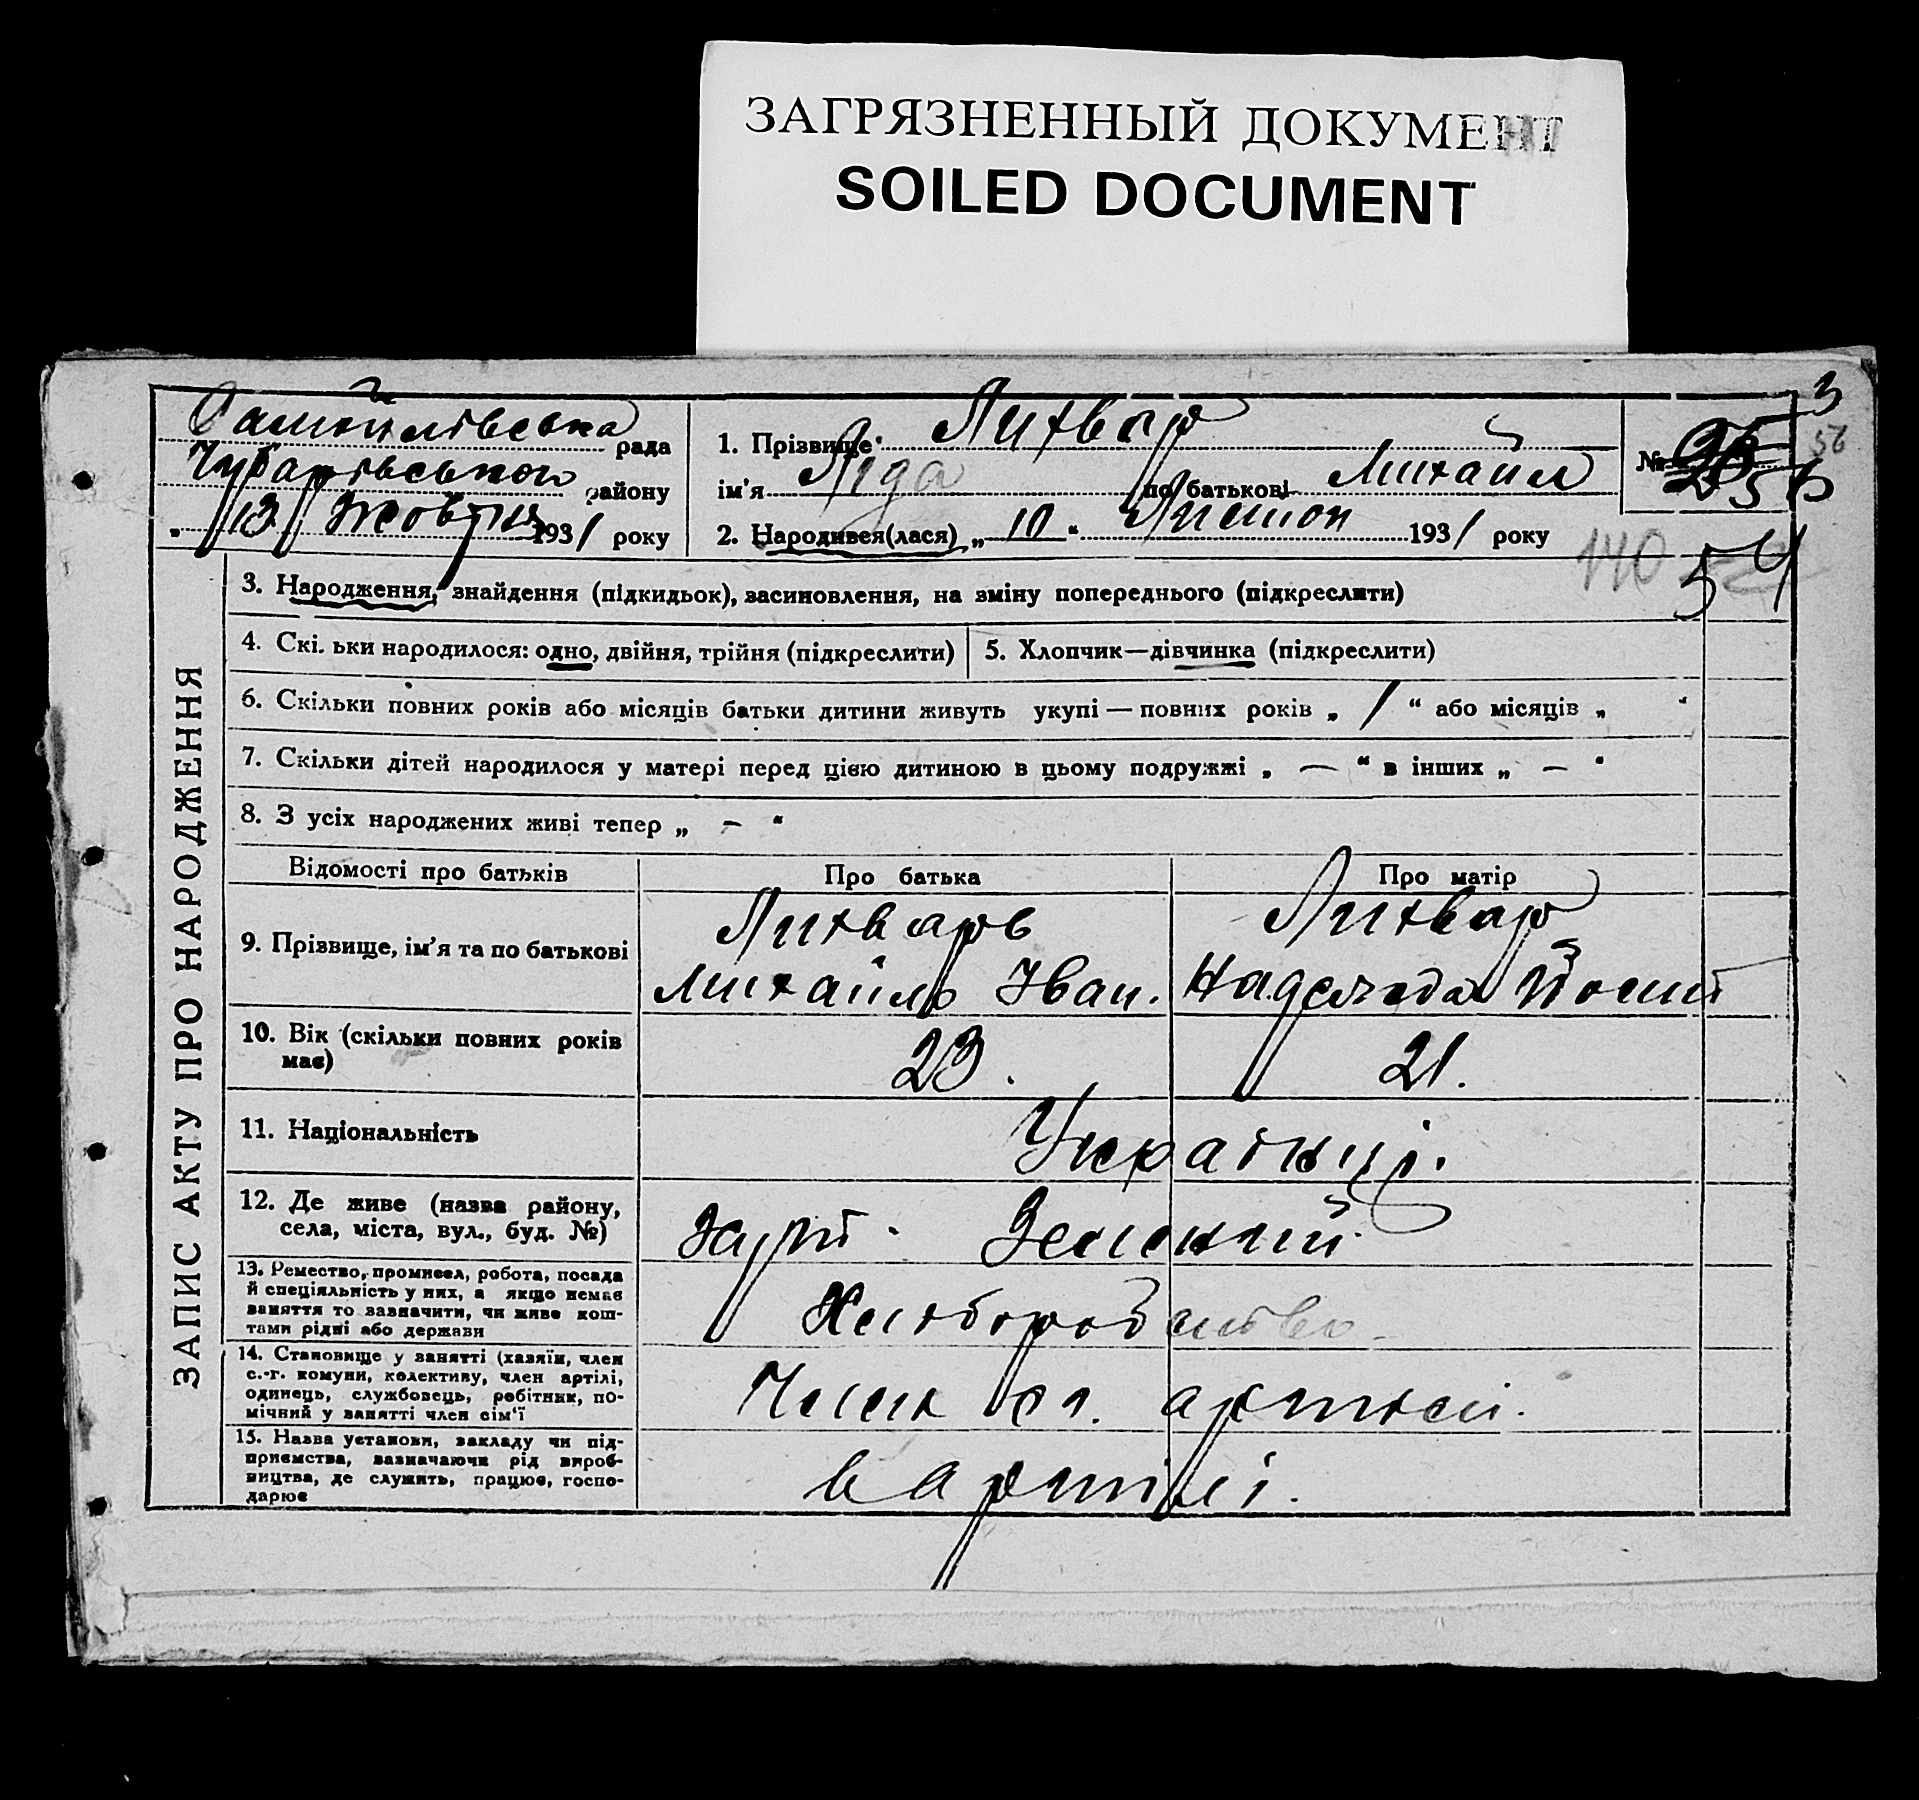 ЗАГРЯЗНЕННЫЙ ДОКУМЕНТ
SOILED DOCUMENT
3
56
Самойлівська рада
Чубарівського району
„ 13 Жовтня 1931 року
1. Прізвище Лихвар
ім'я Ліда по батькові Михайл
2. Народився(лася) „ 10 “ 1931 року
№
140
54
ЗАПИС АКТУ ПРО НАРОДЖЕННЯ
3. Народження, знайдення (підкидьок), засиновлення, на зміну попереднього (підкреслити)
4. Скі. ьки народилося: одно, двійня, трійня (підкреслити)
5. Хлопчик—дівчинка (підкреслити)
6. Скільки повних років або місяців батьки дитини живуть укупі — повних років „ 1 “ або місяців „ “
7. Скільки дітей народилося у матері перед цією дитиною в цьому подружжі „ — “ в інших „ — “
8. З усіх народжених живі тепер „ — “
Відомості про батьків
Про батька
Про матір
9. Прізвище, ім'я та по батькові
Лихварь
Михайль Іван.
Лихвар
Надежда Йосип
10. Вік (скільки повних років
має)
23.
21.
11. Національність
Українці.
12. Де живе (назва району,
села, міста, вул., буд. №)
Зелений
13. Ремество, промисел, робота, посада
й спеціяльність у них, а якщо немає
заняття то зазначити, чи живе кош-
тами рідні або держави
Хліборобство
14. Становище у занятті (хазяїн, член
с.-г. комуни, колективу, член артілі,
одинець, службовець, робітник, по-
мічний у занятті член сім'ї
Член сг. артілі.
15. Назва установи, закладу чи під-
приємства, зазначаючи рід вироб-
ництва, де служить, працює, госпо-
дарює
в артілі.